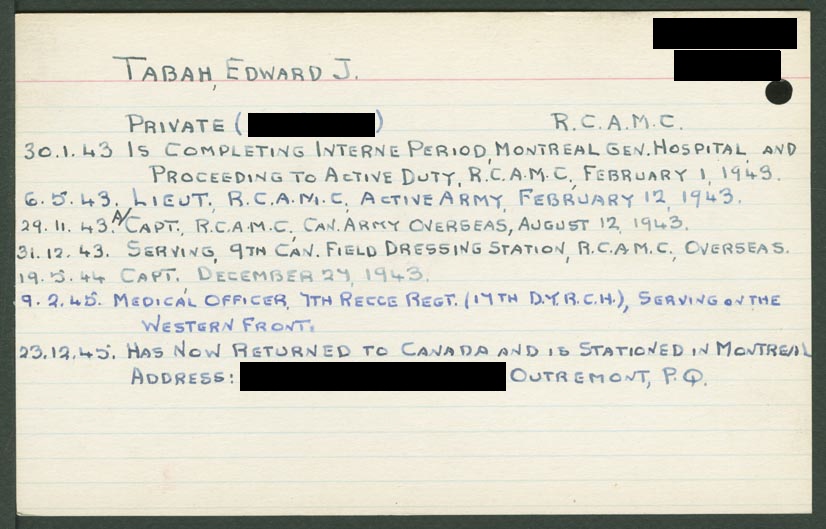 TABAH, EDWARD J.
PRIVATE ( ) R.C.A.M.C.
30.1.43 IS COMPLETING INTERNE PERIOD, MONTREAL GEN. HOSPITAL, AND
PROCEEDING TO ACTIVE DUTY, R.C.A.M.C., FEBRUARY 1, 1943.
6.5.43. LIEUT., R.C.A.M.C., ACTIVE ARMY, FEBRUARY 12, 1943.
29.11.43. A/CAPT., R.C.A.M.C., CAN. ARMY OVERSEAS, AUGUST 12, 1943.
31.12.43. SERVING, 9TH CAN. FIELD DRESSING STATION, R.C.A.M.C., OVERSEAS.
19.5.44 CAPT., DECEMBER 27, 1943.
9.2.45. MEDICAL OFFICER, 7TH RECCE REGT. (17TH D.Y.R.C.H.), SERVING ON THE
WESTERN FRONT.
23.12.45. HAS NOW RETURNED TO CANADA AND IS STATIONED IN MONTREAL
ADDRESS: OUTREMONT, P.Q.